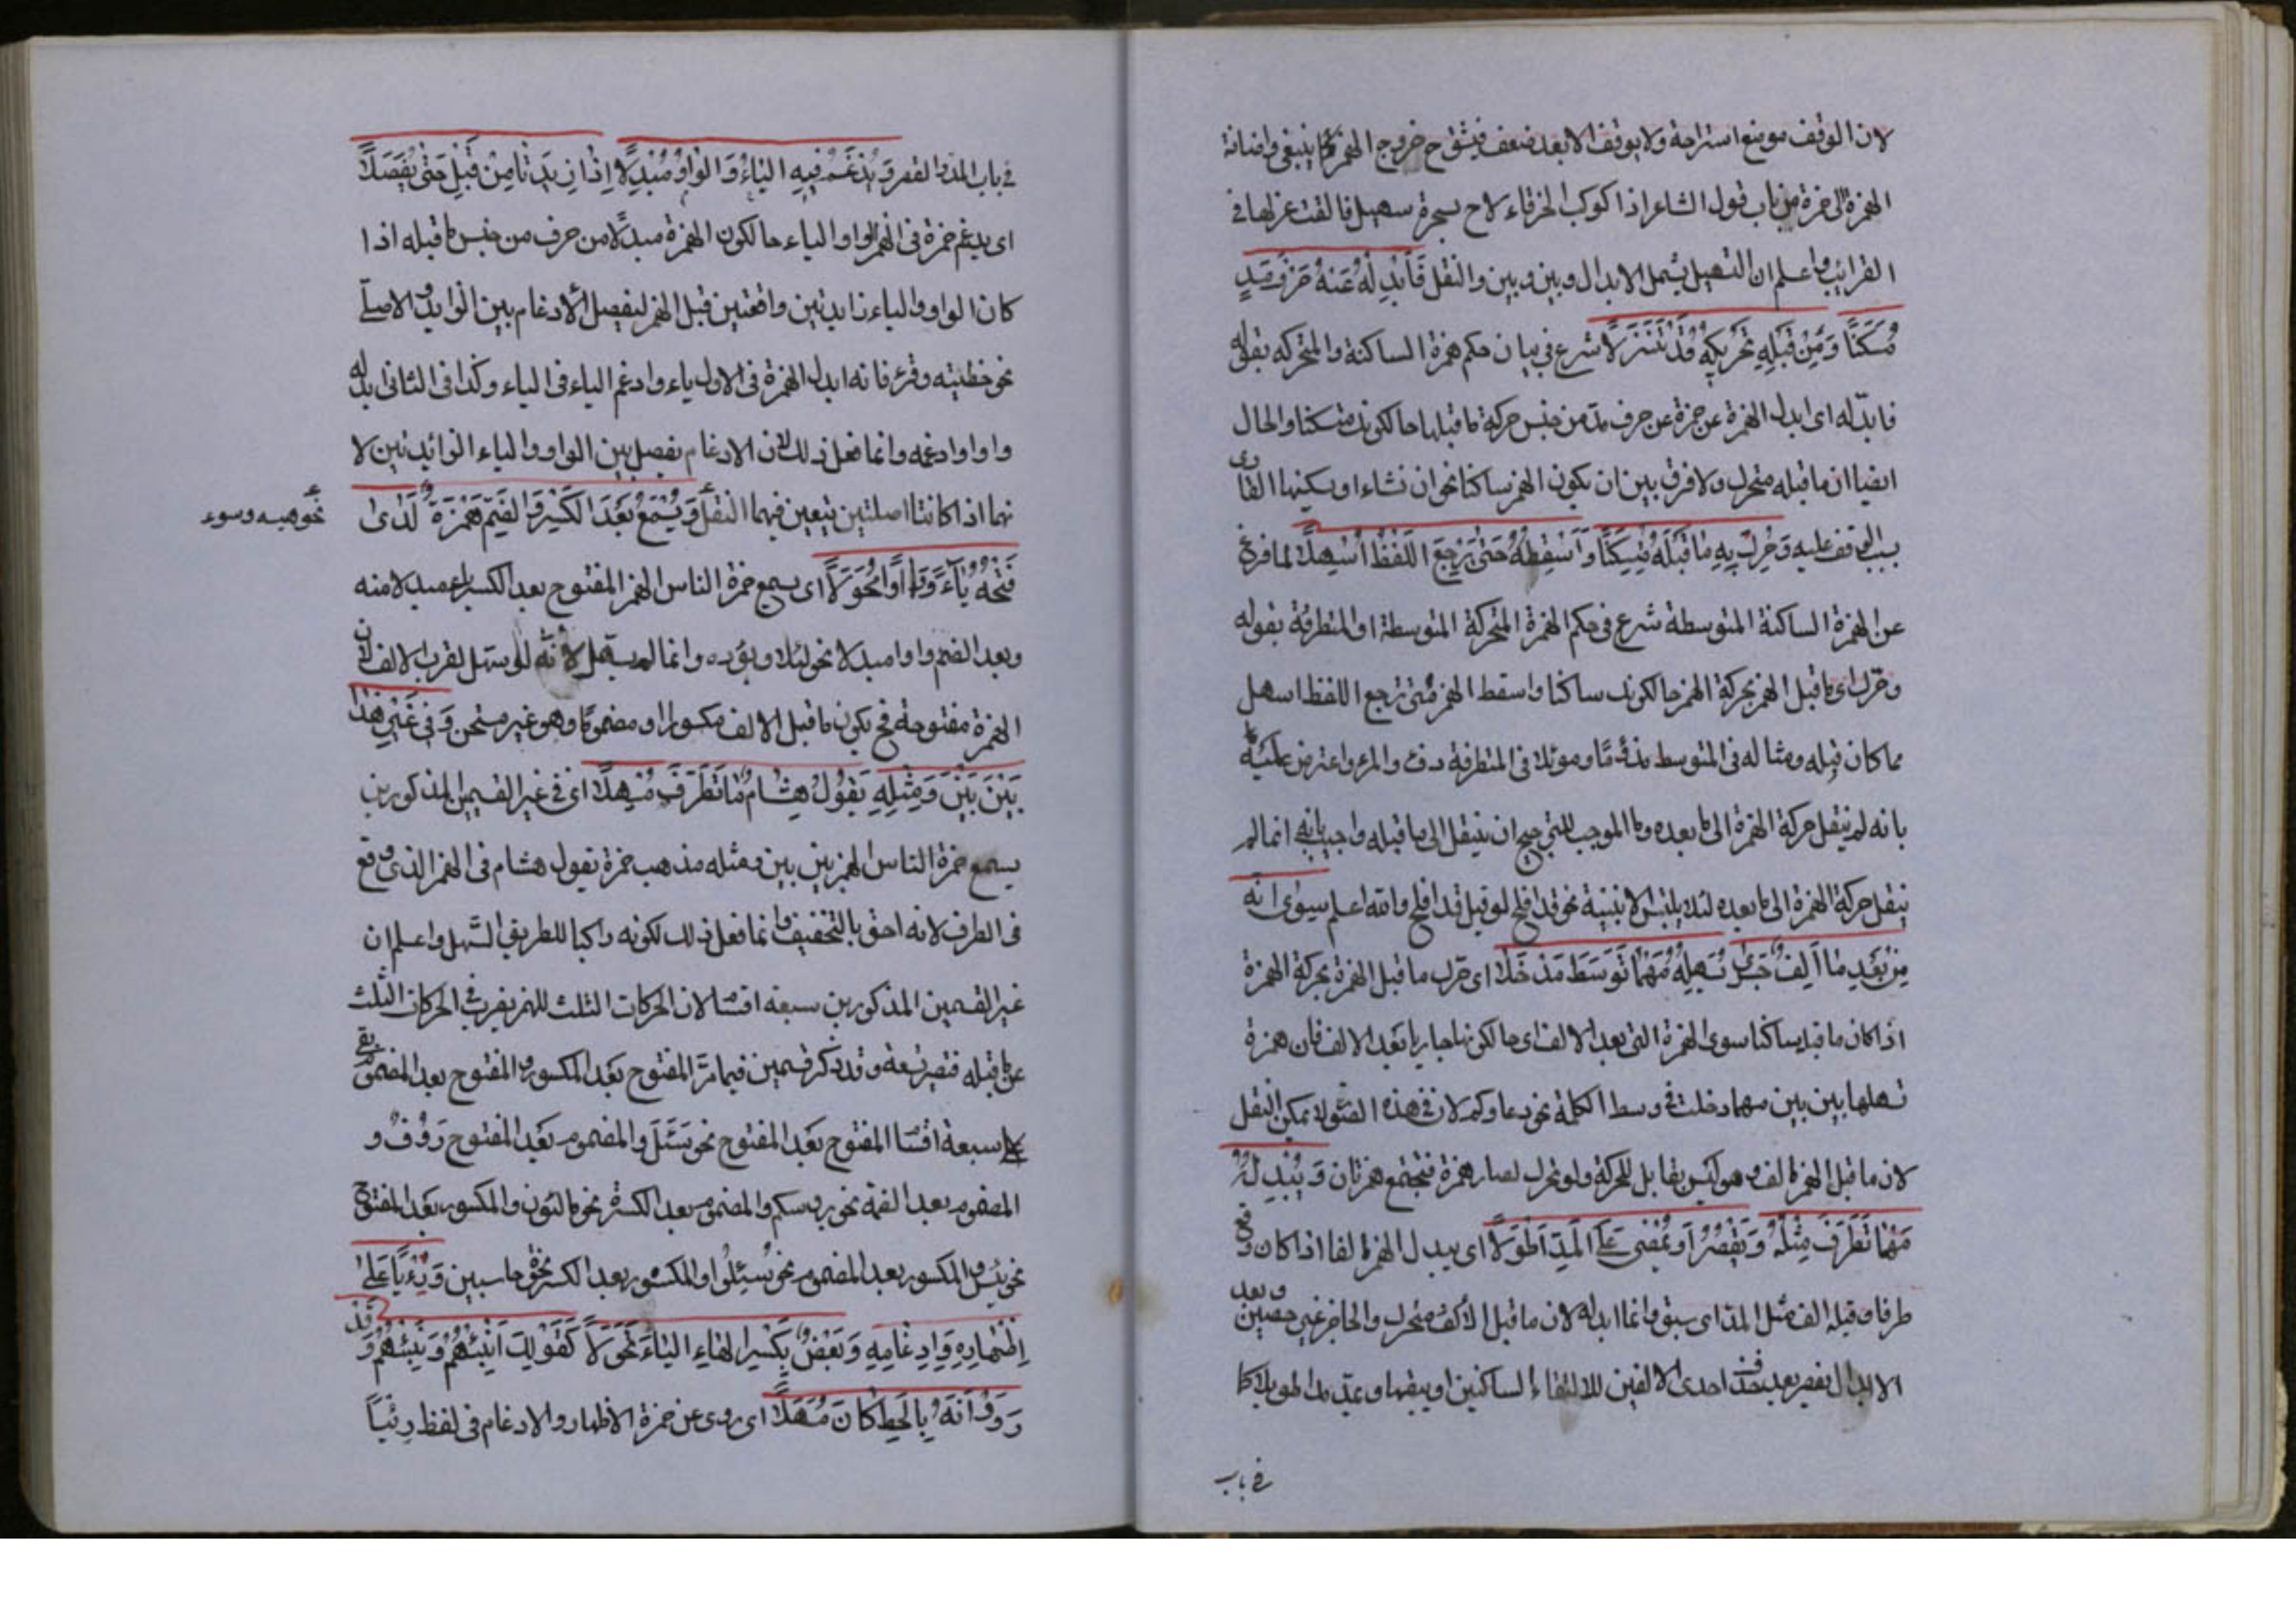 لان الوقف موضع استراحة ولا يوقف الا بعد ضعف فيشق ح خروج الهمزة كما ينبغى واضافة
الهمزة الى حمزة من باب قول الشاعر اذا كوكب الخرقاء لاح بسحرة سهيل فالقت غزلها فى
القرائب واعلم ان التسهيل يشمل الابدال وبين وبين والنقل فَأَبْدِلْهُ عَنْهُ حَرْفَ مَدٍّ
مُسَكَّنًا وَمِنْ قَبْلِهِ تَحْرِيكُهُ قَدْ تَنَزَّلَا شرع فى بيان حكم همزة الساكنة والمتحركة بقوله
فابدله اى ابدل الهمزة عن حمزة عن حرف مد من جنس حركة ما قبلها حالكونه مسكنا والحال
ايضا ان ما قبله متحرك ولا فرق بين ان يكون الهمز ساكنا نحو ان نشاء او يسكنها القاوى
بسبب الوقف عليه وَحَرِّكْ بِهِ مَا قَبْلَهُ مُتَسَكِّنًا وَأَسْقِطْهُ حَتَّى يَرْجِعَ اللَّفْظُ أَسْهَلَا لما فرغ
عن الهمزة الساكنة المتوسطة شرع فى حكم الهمزة المتحركة المتوسطة او المتطرفة بقوله
وحرك اى ما قبل الهمز بحركة الهمز حالكونه ساكنا واسقط الهمز حتى يرجع اللفظ اسهل
مما كان قبله ومثاله فى المتوسط مذؤما وموئلا فى المتطرفة دفء والمرء واعترض عليه
بانه لم ينقل حركة الهمزة الى ما بعده وما الموجب للترجيح ان ينقل الى ما قبله واجيب بانه انما لم
ينقل حركة الهمزة الى ما بعده لئلا يلتبس الابنية نحو قد افلح لو قيل قد افلح والله اعلم سِوَى أَنَّهُ
مِنْ بَعْدِ مَا أَلِفٍ جَرَى يُسَهِّلُهُ مَهْمَا تَوَسَّطَ مَدْخَلَا اى حرك ما قبل الهمزة بحركة الهمزة
اذا كان ما قبله ساكنا سوى الهمزة التى بعد الالف اى حالكونها جاريا بعد الالف فان حمزة
تسهلها بين بين مهما دخلت فى وسط الكلمة نحو دعاوكم لان فى هذه الصورة لا يمكن النقل
لان ما قبل الهمزة الف وهو ليس بقابل للحركة ولو تحرك لصار همزة فيجتمع همزتان وَيُبْدِلُهُ
مَهْمَا تَطَرَّفَ مِثْلَهُ وَيَقْصُرُ أَوْ يَمْضِى عَلَى الْمَدِّ أَطْوَلَا اى يبدل الهمزة الفا اذا كان وقع
طرفا وقبله الف مثل المد اى سبق وانما ابدله لان ما قبل الالف متحرك والحاجز غير حصين وبعد
الابدال يقصر بعد حذف احدى الالفين لالتقاء الساكنين او يبقيها ويمد مدا طويلا كما
فى باب
فى باب المد والقصر وَيُدْغِمُ فِيهِ الْيَاءَ وَالْوَاوَ مُبْدِلًا إِذَا زِيدَتَا مِنْ قَبْلُ حَتَّى يُفَصَّلَا
اى يدغم حمزة فى الهمز الواو والياء حالكون الهمزة مبدلا من حرف من جنس ما قبله اذا
كان الواو والياء زايدتين واقعتين قبل الهمز ليفصل الادغام بين الزايد والاصلى
نحو خطيئته وقرء فانه ابدل الهمزة فى الاول ياء وادغم الياء فى الياء وكذا فى الثانى بدله
واوا وادغمه وانما فعل ذلك لان الادغام يفصل بين الواو والياء الزائدتين لا
نهما اذا كانتا اصلتين يتبعين فيهما النقل وَيُسْمِعُ بَعْدَ الْكَسْرِ وَالضَّمِّ هَمْزَهُ لَدَى
نحو هيئه وسوء
فَتْحِهِ يَاءً وَوَاوًا مُحَوَّلَا اى يسمع حمزة الناس الهمز المفتوح بعد الكسر ياء مبدلا منه
وبعد الضم واوا مبدلا نحو لئلا ويؤده وانما لم يسهل لانه لو سهل لقرب الالف لان
الهمزة مفتوحة فح يكون ما قبل الالف مكسورا او مضموما وهو غير مستحسن وَفِى غَيْرِ هٰذَا
بَيْنَ بَيْنَ وَمِثْلُهُ يَقُولُ هِشَامٌ مَا تَطَرَّفَ مُسْهِلَا اى فى غير القسمين المذكورين
يسمع حمزة الناس الهمز بين بين ومثله مذهب حمزة يقول هشام فى الهمز الذى وقع
فى الطرف لانه احق بالتخفيف وانما فعل ذلك لكونه راكبا للطريق السهل واعلم ان
غير القسمين المذكورين سبعة اقسا لان الحركات الثلث للهمز يضرب فى الحركات الثلث
عن ما قبله فتصير تسعة وقد ذكر قسمين فيما مر المفتوح بعد المكسور والمفتوح بعد المضموم بقى
سبعة اقسا المفتوح بعد المفتوح نحو سَئَلَ والمضموم بعد المفتوح رَؤُفٌ و
المضموم بعد الضمة نحو برؤسكم والمضموم بعد الكسرة نحو مالئون والمكسور بعد المفتوح
نحو يئس والمكسور بعد المضموم نحو سُئِلُوا والمكسور بعد الكسرة نحو خاسئين وَرِءْيًا عَلَى
إِظْهَارِهِ وَإِدْغَامِهِ وَبَعْضٌ بِكَسْرِ الْهَاءِ الْيَاءَ تَحَوَّلَا كَقَوْلِكَ أَنْبِئْهُمْ وَنَبِّئْهُمْ وَقَدْ
رَوَوْا أَنَّهُ بِالْخَطِّ كَانَ مُسَهِّلَا اى روى عن حمزة الاظهار والادغام فى لفظ رِئْيًا